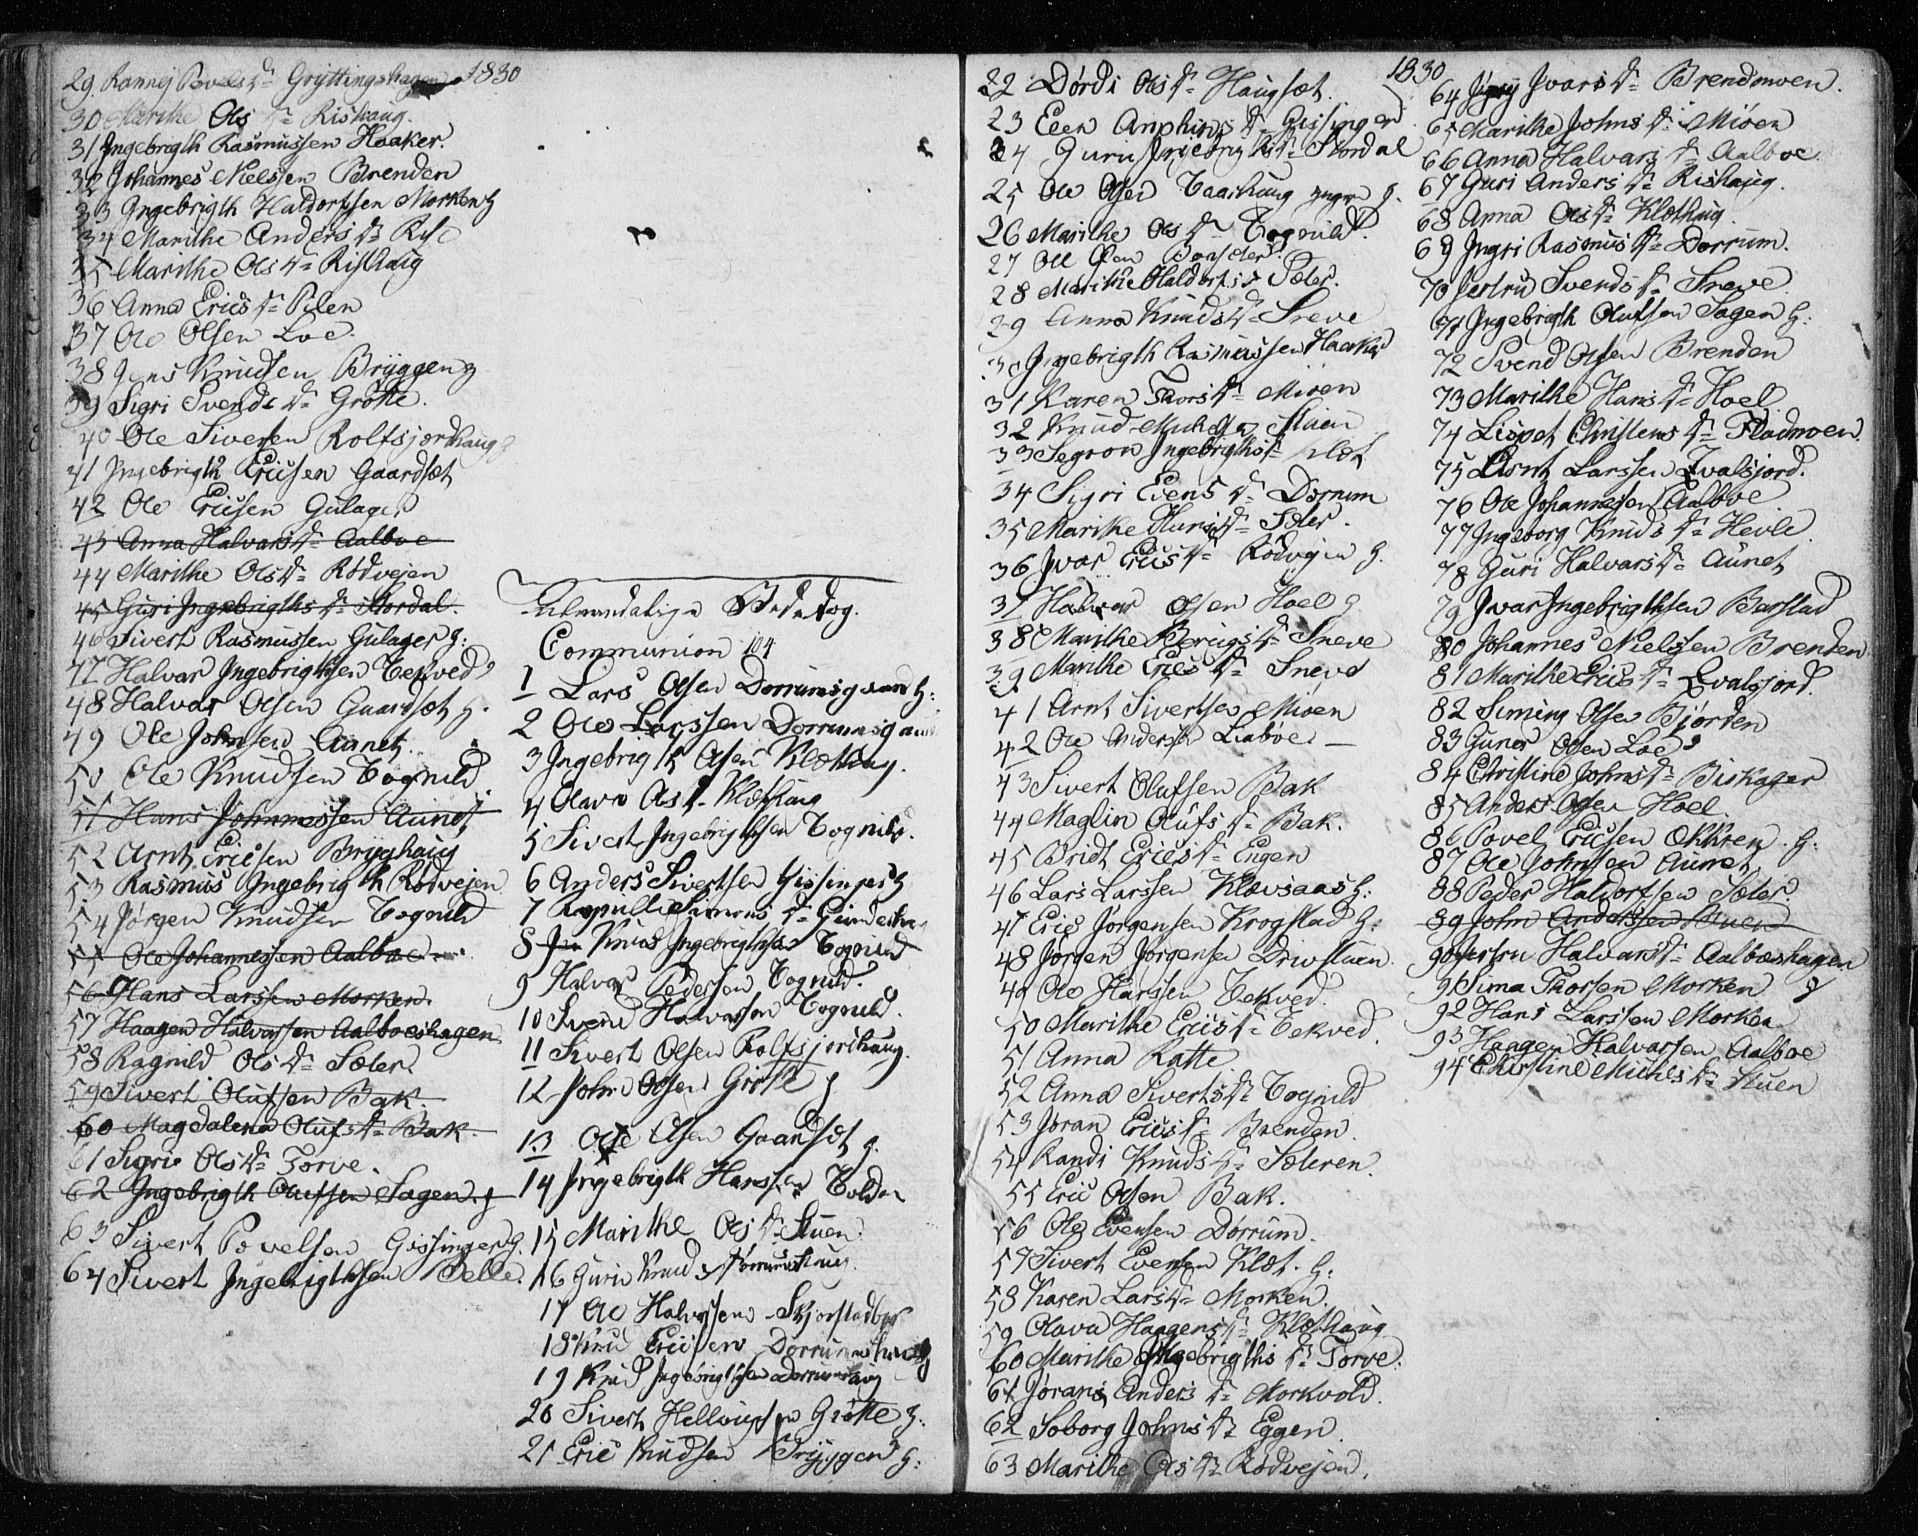 1830
29 Rannej Povels Dr Gryttingshagen
30 Marithe Ols Dr Rishaug.
31 Ingebrigth Rasmussen Haaker.
32 Johannes Nielssen Brenden
33 Ingebrigth Haldorssen Morken g
34 Marithe Anders Dr Rise
35 Marithe Ols Dr Rishaug
36 Anna Erics Dr
37 Ole Olsen Loe.
38 Jens Knudsen Bryggen g
39 Sigri Svends Dr Grøtte.
40 Ole Sivertsen Rolfsjordhaug
41 Ingebrigth Ericsen Gaardsæt
42 Ole Ericsen Gulager
43 Anna Halvars Dr Aalboe
44 Marithe Ols Dr Rødvejen
45 Guri Ingebrigths Dr Stordal.
46 Sivert Rasmussen Gulager g:
47 Halvar Ingebrigthsen Tekved
48 Halvar Olsen Gaardsæt g.
49 Ole Johnsen Aunet
50 Ole Knudsen Tognild
51 Hans Johannessen Aunet
52 Arnt Ericsen Brygghaug
53 Rasmus Ingebrigth Rødvejen
54 Jørgen Knudsen Tognild
55 Ole Johannessen Aalboe
56 Hans Larssen Morken
57 Haagen Halvarssen Aalboeshagen
58 Ragnild Ols Dr Sæter
59 Sivert Olufsen Bak.
60 Magdalena Olufs Dr Bak.
61 Sigri Ols Dr Torve.
62 Ingebrigth Olufsen Sagen. g
63 Sivert Povelsen Gissinger g.
64 Sivert Ingebrigthsen
Almindelige Bededag.
Communion 104
1 Lars Olsen Dorrumsgaard g:
2 Ole Larssen Dorrumsgaard
3 Ingebrigth Olsen Klæthaug.
4 Olava Ols Dr Klæthaug
5 Sivert Ingebrigthsen Tognild.
6 Anders Sivertsen Gissinger g
7 Simens Dr
8 Knud Ingebrigths Tognild
9 Halvar Pedersen Tognild.
10 Svend Halvarsson Tognild.
11 Sivert Olsen Rolfsjordhaug.
12 John Olsen Grøtte g
13 Ole Olsen Gaardsæt g.
14 Ingebrigth Hanssen
15 Marithe Ols Dr Stuen.
16 Guri Knuds Dorrumshaug.
17 Ole Halvorssen
18 Knud Ericsen Dorrumshaug
19 Knud Ingebrigthsen Dorrumshaug
20 Sivert Grøtte g.
21 Eric Knudsen Bryggen g.
1830
22 Dørdi Ols Dr Haugsæt.
23 Elen Dr Gissinger
24 Guri Ingebrigths Dr Stordal
25 Ole Olsen yngre g.
26 Marithe Ols Dr Tognild.
27 Ole Olsen
28 Marithe Haldors Dr Sæter.
29 Anna Knuds Dr Sneve
30 Ingebrigth Rasmussen Haaker
31 Karen Thors Dr Mioen
32 Knud Stuen
33 Segron Ingebrigths Dr Klæt
34 Sigri Evens Dr Dorrum
35 Marithe Dr Sæter.
36 Ivar Erics Dr Rødvejen g.
37 Halvor Olsen Hoel g
38 Marithe Dr Sneve
39 Marithe Erics Dr Sneve
41 Arnt Sivertsen Mioen
42 Ole Andersen Liabøe. —
43 Sivert Olufsen Bak
44 Maglin Olufs Dr Bak.
45 Bridt Erics Dr Engen
46 Lars Larssen Klevsaas g:
47 Eric Jørgensen Krogstad g:
48 Jørgen Jørgensen Drivstuen.
49 Ole Hanssen Tekved.
50 Marithe Erics Dr Tekved.
51 Anna Ratte
52 Anna Siverts Dr Tognild
53 Jøran Erics Dr Brenden.
54 Randi Knuds Dr Sæteren.
55 Eric Olsen Bak.
56 Ole Evensen Dørrum.
57 Sivert Evensen Klæt. g.
58 Karen Lars Dr Morken.
59 Olava Haagens Dr Klæthaug
60 Marithe Ingebrigths Dr Torve.
61 Jøran Anders Dr Morkvold.
62 Soborg Johns Dr Eggen.
63 Marithe Ols Dr Rødvejen.
64 Ivars Dr Brendmoen.
65 Marithe Johns Dr Mioen
66 Anna Halvars Dr Aalboe
67 Guri Anders Dr Rishaug.
68 Anna Ols Dr Klæthaug.
69 Ingri Rasmus Dr Dorrum.
70 Jertru Svends Dr Sneve
71 Ingebrigth Olufsen Sagen g:
72 Svend Olsen Brenden
73 Marithe Hans Dr Hoel
74 Lisbet Christens Dr Flodmoen.
75 Arnt Larssen Qvalsjord.
76 Ole Johannessen Aalboe
77 Ingeborg Knuds Dr Hevle.
78 Guri Halvars Dr Aunet
79 Ivar Ingebrigthsen Barstad
80 Johannes Nielssen Brenden
81 Marithe Erics Dr Qvalsjord.
82 Siming Olsen Bjørden
83 Guner Olsen Loe
84 Christine Johns Dr Biskager
85 Anders Olsen Hoel
86 Povel Ericsen g.
87 Ole Johnsen Aunet
88 Peder Haldorssen Sæter.
89 John Anderssen Stuen
90 Jertru Halvars Dr Aalboeshagen
91 Sima Thorssen Morken g
92 Hans Larssen Morken
93 Haagen Halvarsen Aalboe
94 Christine Dr Stuen